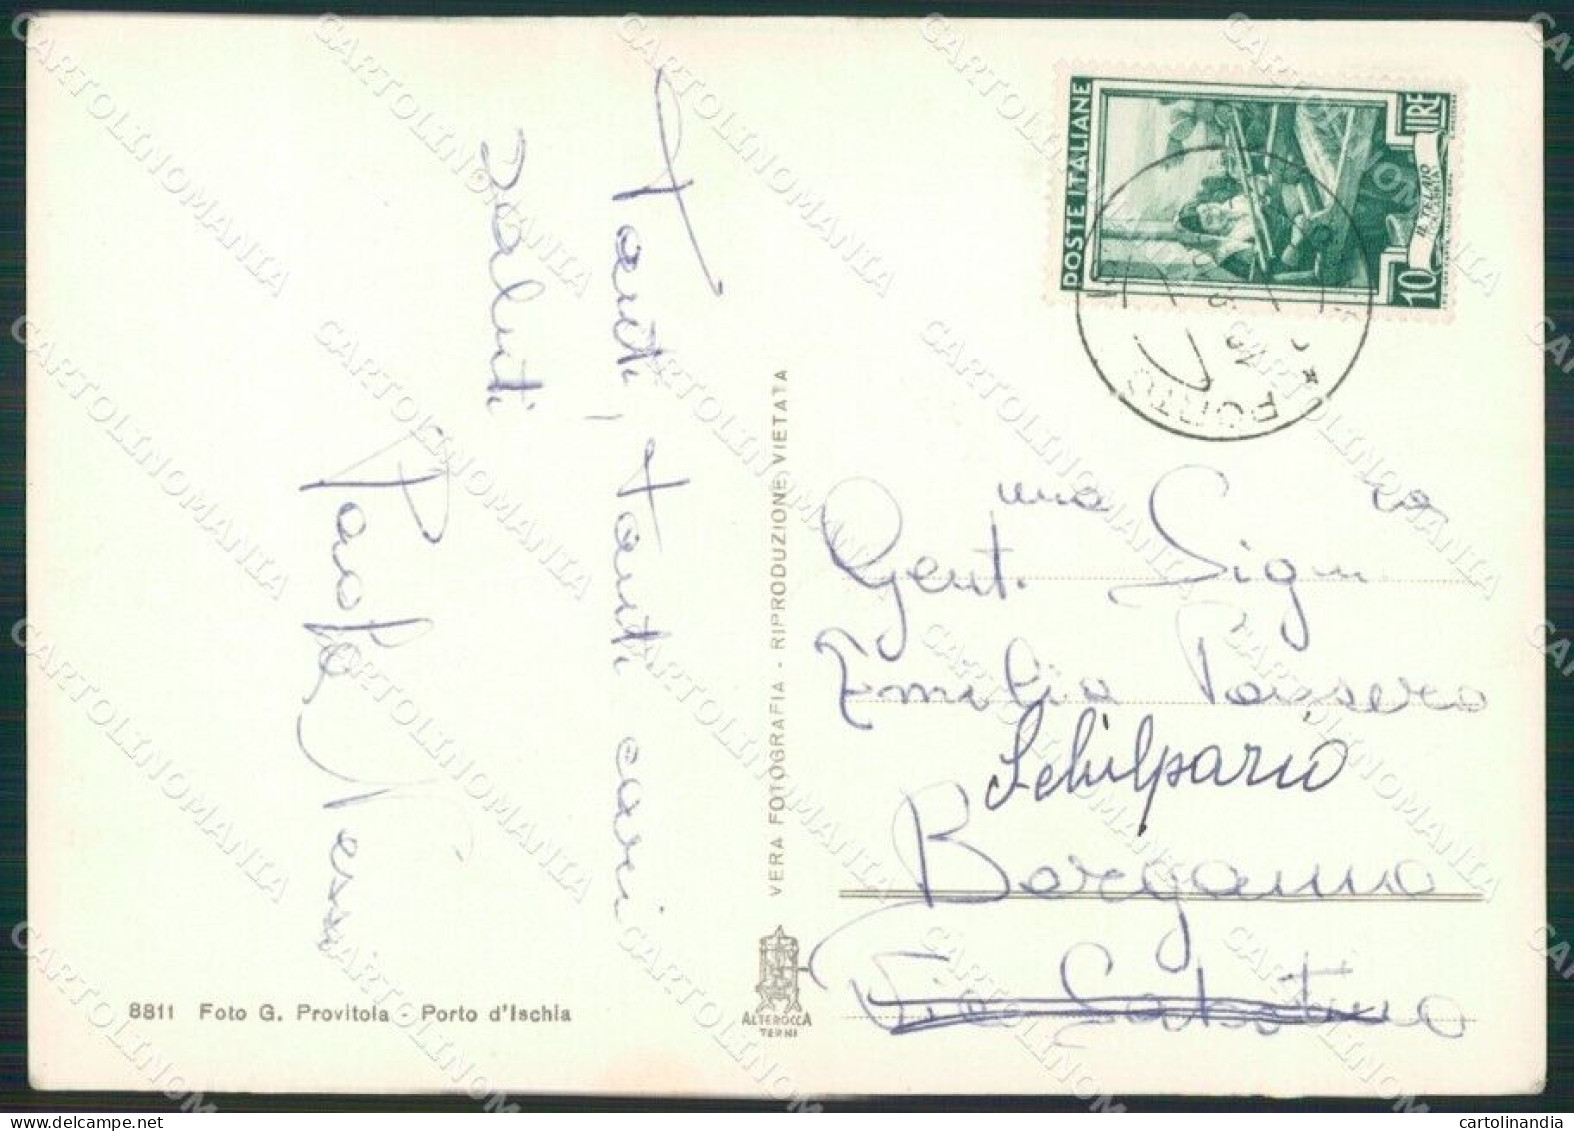 Tanti, tanti cari
saluti
Paola Nessi
8811 Foto G. Provitola - Porto d'Ischia
VERA FOTOGRAFIA - RIPRODUZIONE VIETATA
ALTEROCCA
TERNI
POSTE ITALIANE
LIRE
10
IL TELAIO
PORTO
Gent.ma Sig.ra
Emilia Passera
Schilpario
Bergamo
Via
CARTOLINOMANIA
cartolinandia